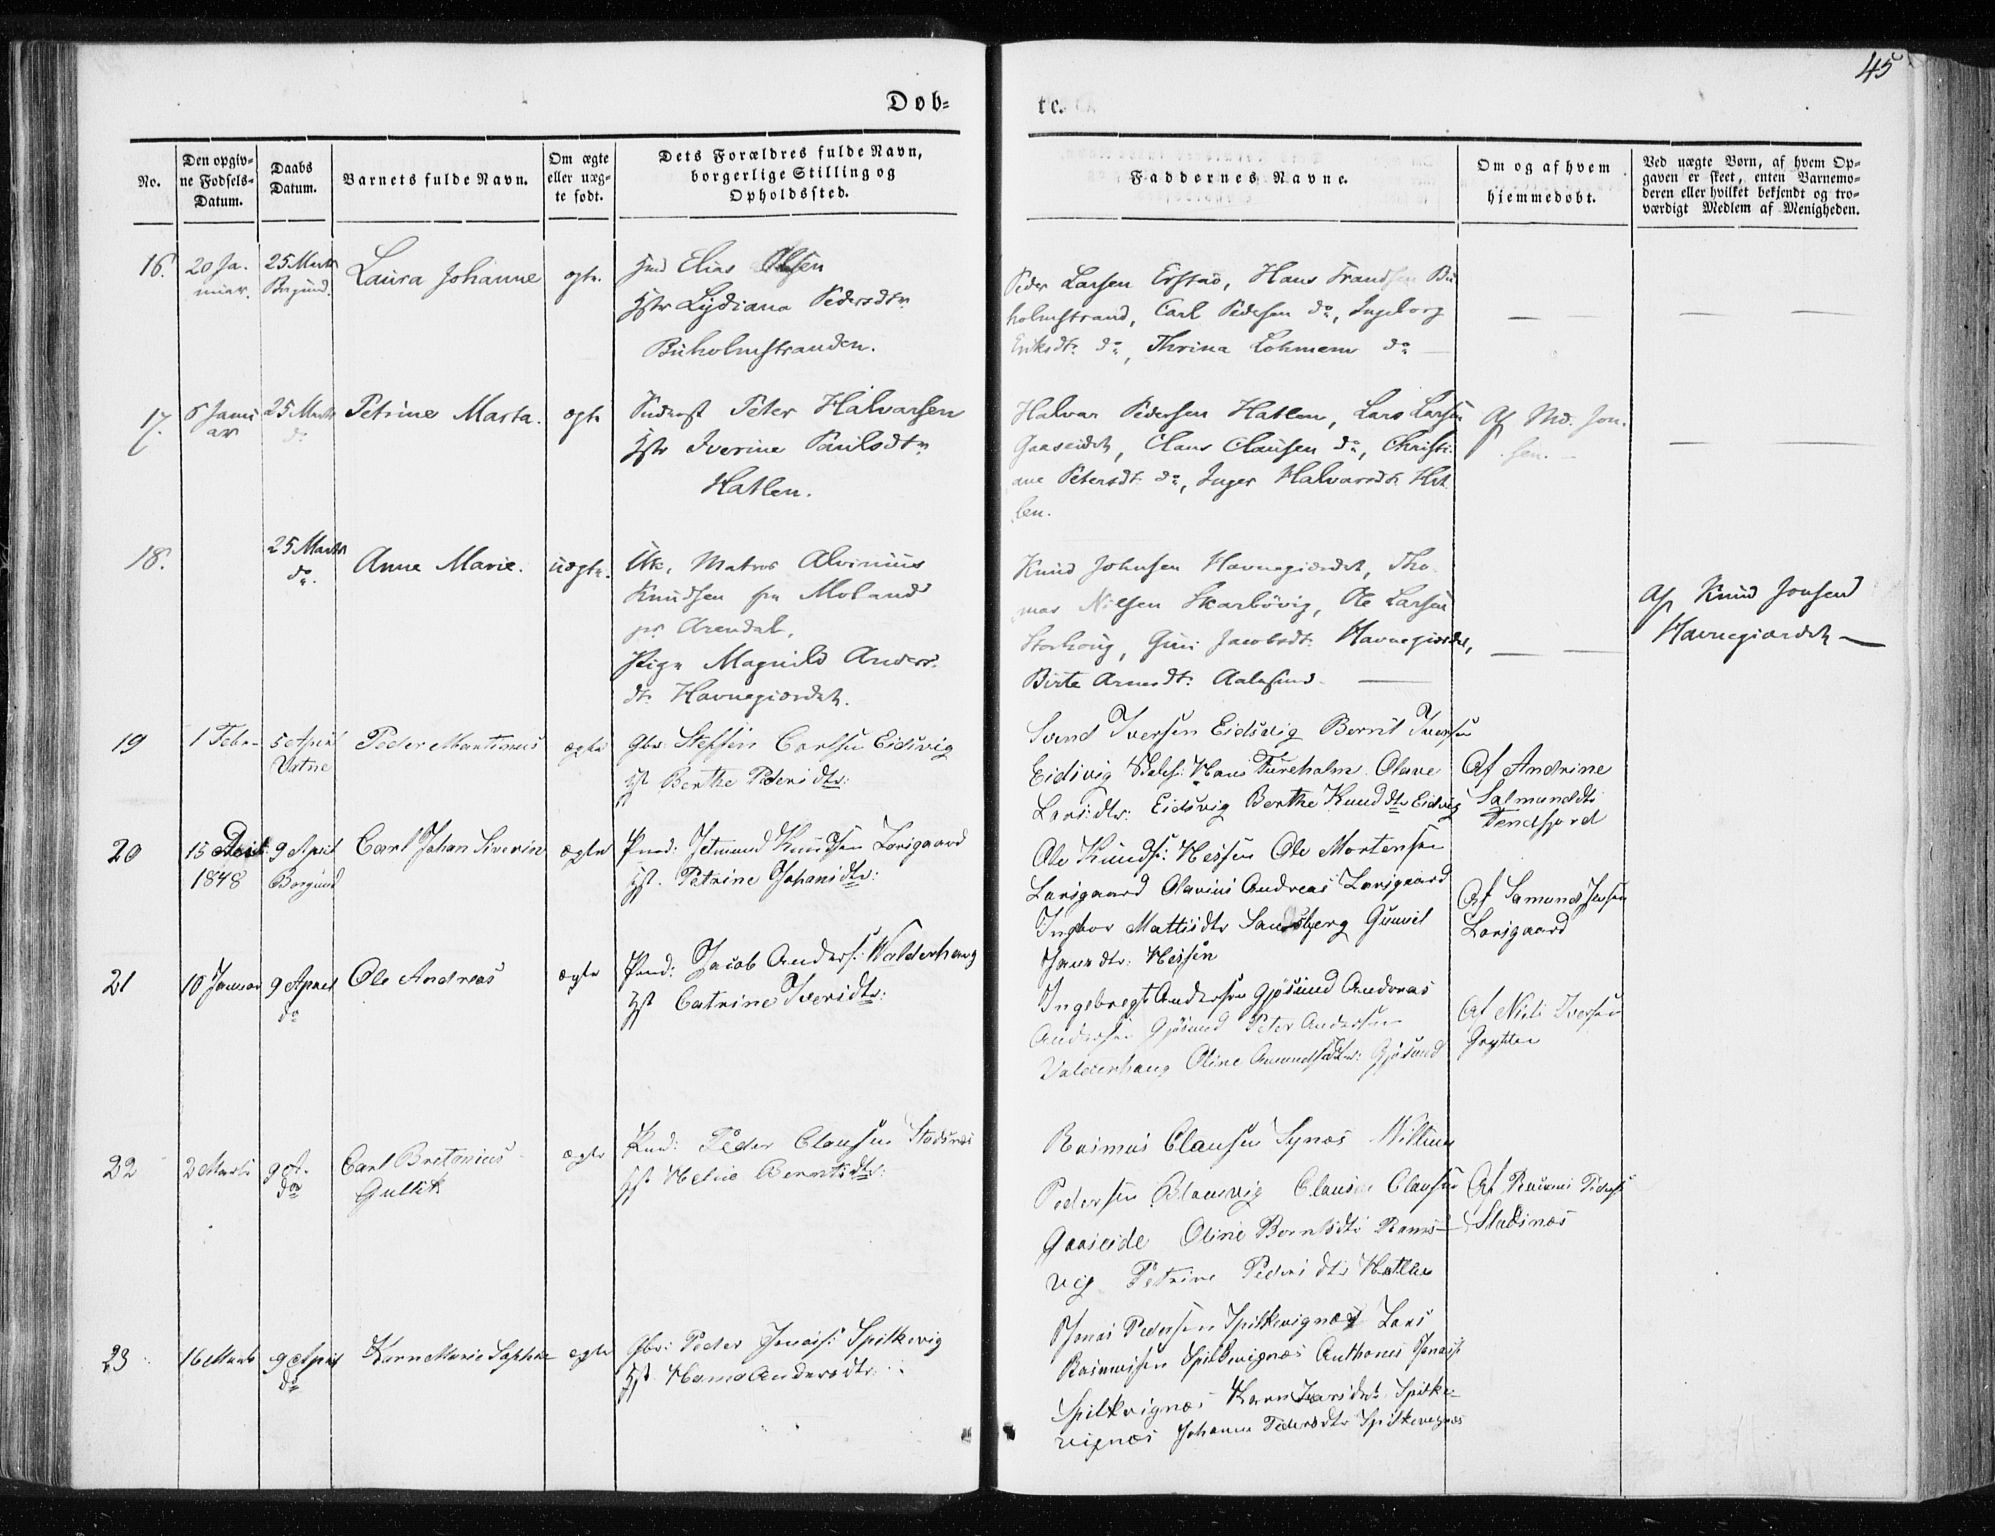 45
Døb-
te.
No.
Den opgiv-
ne Fødsels-
Datum.
Daabs
Datum.
Barnets fulde Navn.
Om ægte
eller uæg-
te født.
Dets Forældres fulde Navn,
borgerlige Stilling og
Opholdssted.
Faddernes Navne.
Om og af hvem
hjemmedøbt.
Ved uægte Børn, af hvem Op-
gaven er skeet, enten Barnemo-
deren eller hvilket bekjendt og tro-
værdigt Medlem af Menigheden.
16.
20 Ja-
nuar.
25 Marts
Borgund.
Laura Johanne
ægte.
Elias Olsen
Hstr Lydiana Pedersdtr
Buholmstranden.
Peder Larsen Erstad, Hans Frandsen Bu
holmstrand, Carl Pedersen do, Ingeborg
Eriksdtr do, Thrina Lohmann do
17.
6 Janu
ar
25 Marts
do
Petrine Marta.
ægte
Peter Halvarsen
Hstr Iverine Paulsdtr
Hatlen.
Halvar Pedersen Hatlen, Lars Larsen
Gaaseidet, Claus Clausen do, Christi-
ane Petersdtr do, Inger Halvarsdtr Hat
len.
Af Md. Jon-
sen.
18.
25 Marts
do.
Anne Marie.
uægte.
Uk. Matros Alvinius
Knudsen fra Moland
pr Arendal,
Pige Magnild Anders-
dtr Havnegiærdet.
Knud Johnsen Havnegiærdet, Tho-
mas Nilsen Skarbøvig, Ole Larsen
Storhoug, Guri Jacobsdtr Havnegiærdet,
Birte Arnesdtr Aalesund.
Af Knud Jonsen
Havnegiærdet
19
1 Febr
5 April
Vatne
Peder Martinus
ægte
Gbr: Steffen Carlsen Eidsvig
Hst Berthe Pedersdtr:
Svend Iversen Eidsvig Bernt Iversen
Eidsvig Hans Fureholm Olave
Larsdtr: Eidsvig Berthe Knuddtr Eidsvig
Af Andrine
Salmunddtr
Tendfjord
20
15
1848
9 April
Borgund
Carl Johan Siverin
ægte
Pmd: Jetmund Knudsen Larsgaard
Hst. Petrine Johansdtr:
Ole Knuds: Hessen Ole Mortensen
Larsgaard Olavius Andreas Larsgaard
Ingbor Mattisdtr Sandsberg Gunnil
Jansdtr: Hessen
Af Samund Jensen
Larsgaard
21
10 Januar
9 April
do
Ole Andreas
ægte
Pmd: Jacob Anders: Walderhaug
Hst Catrine Iversdtr:
Ingebregt Andersen Gjøsund Andreas
Andersen Gjøsund Peter Andersen
Valderhaug Oline Amundsdtr: Gjøsund
Af Nils Iversen
Grytten
22
2 Marts
9 A.
do
Carl Bretanius
Gullik
ægte
Pmd: Peder Clausen Stadsnæs
Hst Heline Berntsdtr:
Rasmus Clausen Synæs Villum
Pedersen Blamvig Claus Clausen
Gaaseide Oline Berntsdtr Rams-
vig Petrine Pedersdtr Hatlen
Af Rasmus Peders:
Stadsnæs
23
16 Marts
9 April
do
Karn Marie Saphie
ægte
Gbr: Peder Jonas: Spilkevig
Hst Hanna Andersdtr:
Jonas Pedersen Spilkevignæs Lars
Rasmusen Spilkevignæs Anthones Jonas:
Spilkvignæs Karn Larsdtr Spilke-
vignæs Johanna Pedersdtr Spilkevignæs